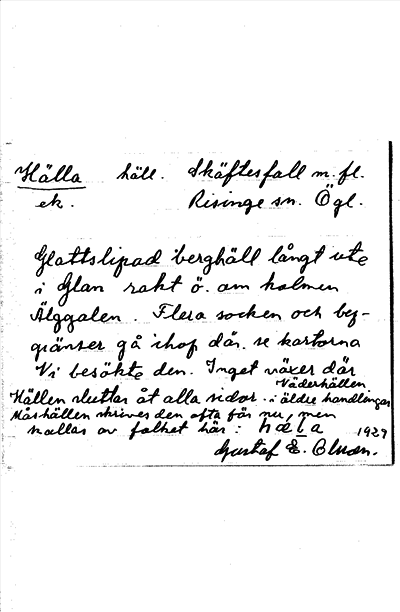 Hälla häll. Skäftesfall m. fl.
ek. Risinge sn. Ögl.
Glattslipad berghäll långt ute
i Glan rakt ö. om holmen
Älggalen. Flera socken och by-
gränser gå ihop där. se kartorna
Vi besökte den. Inget växer där
Väderhällen
Hällen sluttar åt alla sidor. i äldre handlingar
Måshällen skrives den ofta för nu, men
kallas av folket här: hæla 1929
Gustaf E.